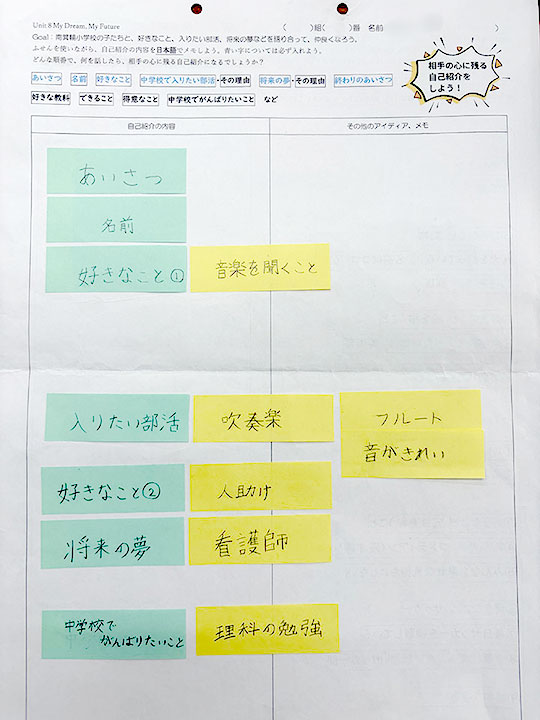 Unit 8 My Dream, My Future
(　　)組(　　)番　名前(　　　　　　　　)
Goal：南箕輪小学校の子たちと、好きなこと、入りたい部活、将来の夢などを語り合って、仲良くなろう。
ふせんを使いながら、自己紹介の内容を日本語でメモしよう。青い字については必ず入れよう。
どんな順番で、何を話したら、相手の心に残る自己紹介になるでしょうか？
あいさつ　名前　好きなこと　中学校で入りたい部活・その理由　将来の夢・その理由　終わりのあいさつ
好きな教科　できること　得意なこと　中学校でがんばりたいこと　など
相手の心に残る
自己紹介を
しよう！
自己紹介の内容　その他のアイディア、メモ
あいさつ
名前
好きなこと①　音楽を聞くこと
入りたい部活　吹奏楽　フルート
音がきれい
好きなこと②　人助け
将来の夢　看護師
中学校で
がんばりたいこと　理科の勉強